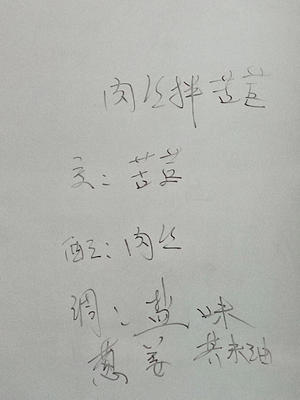 肉丝拌苦苣
主:苦苣
配:肉丝
调:盐 味
葱 姜 芥末油